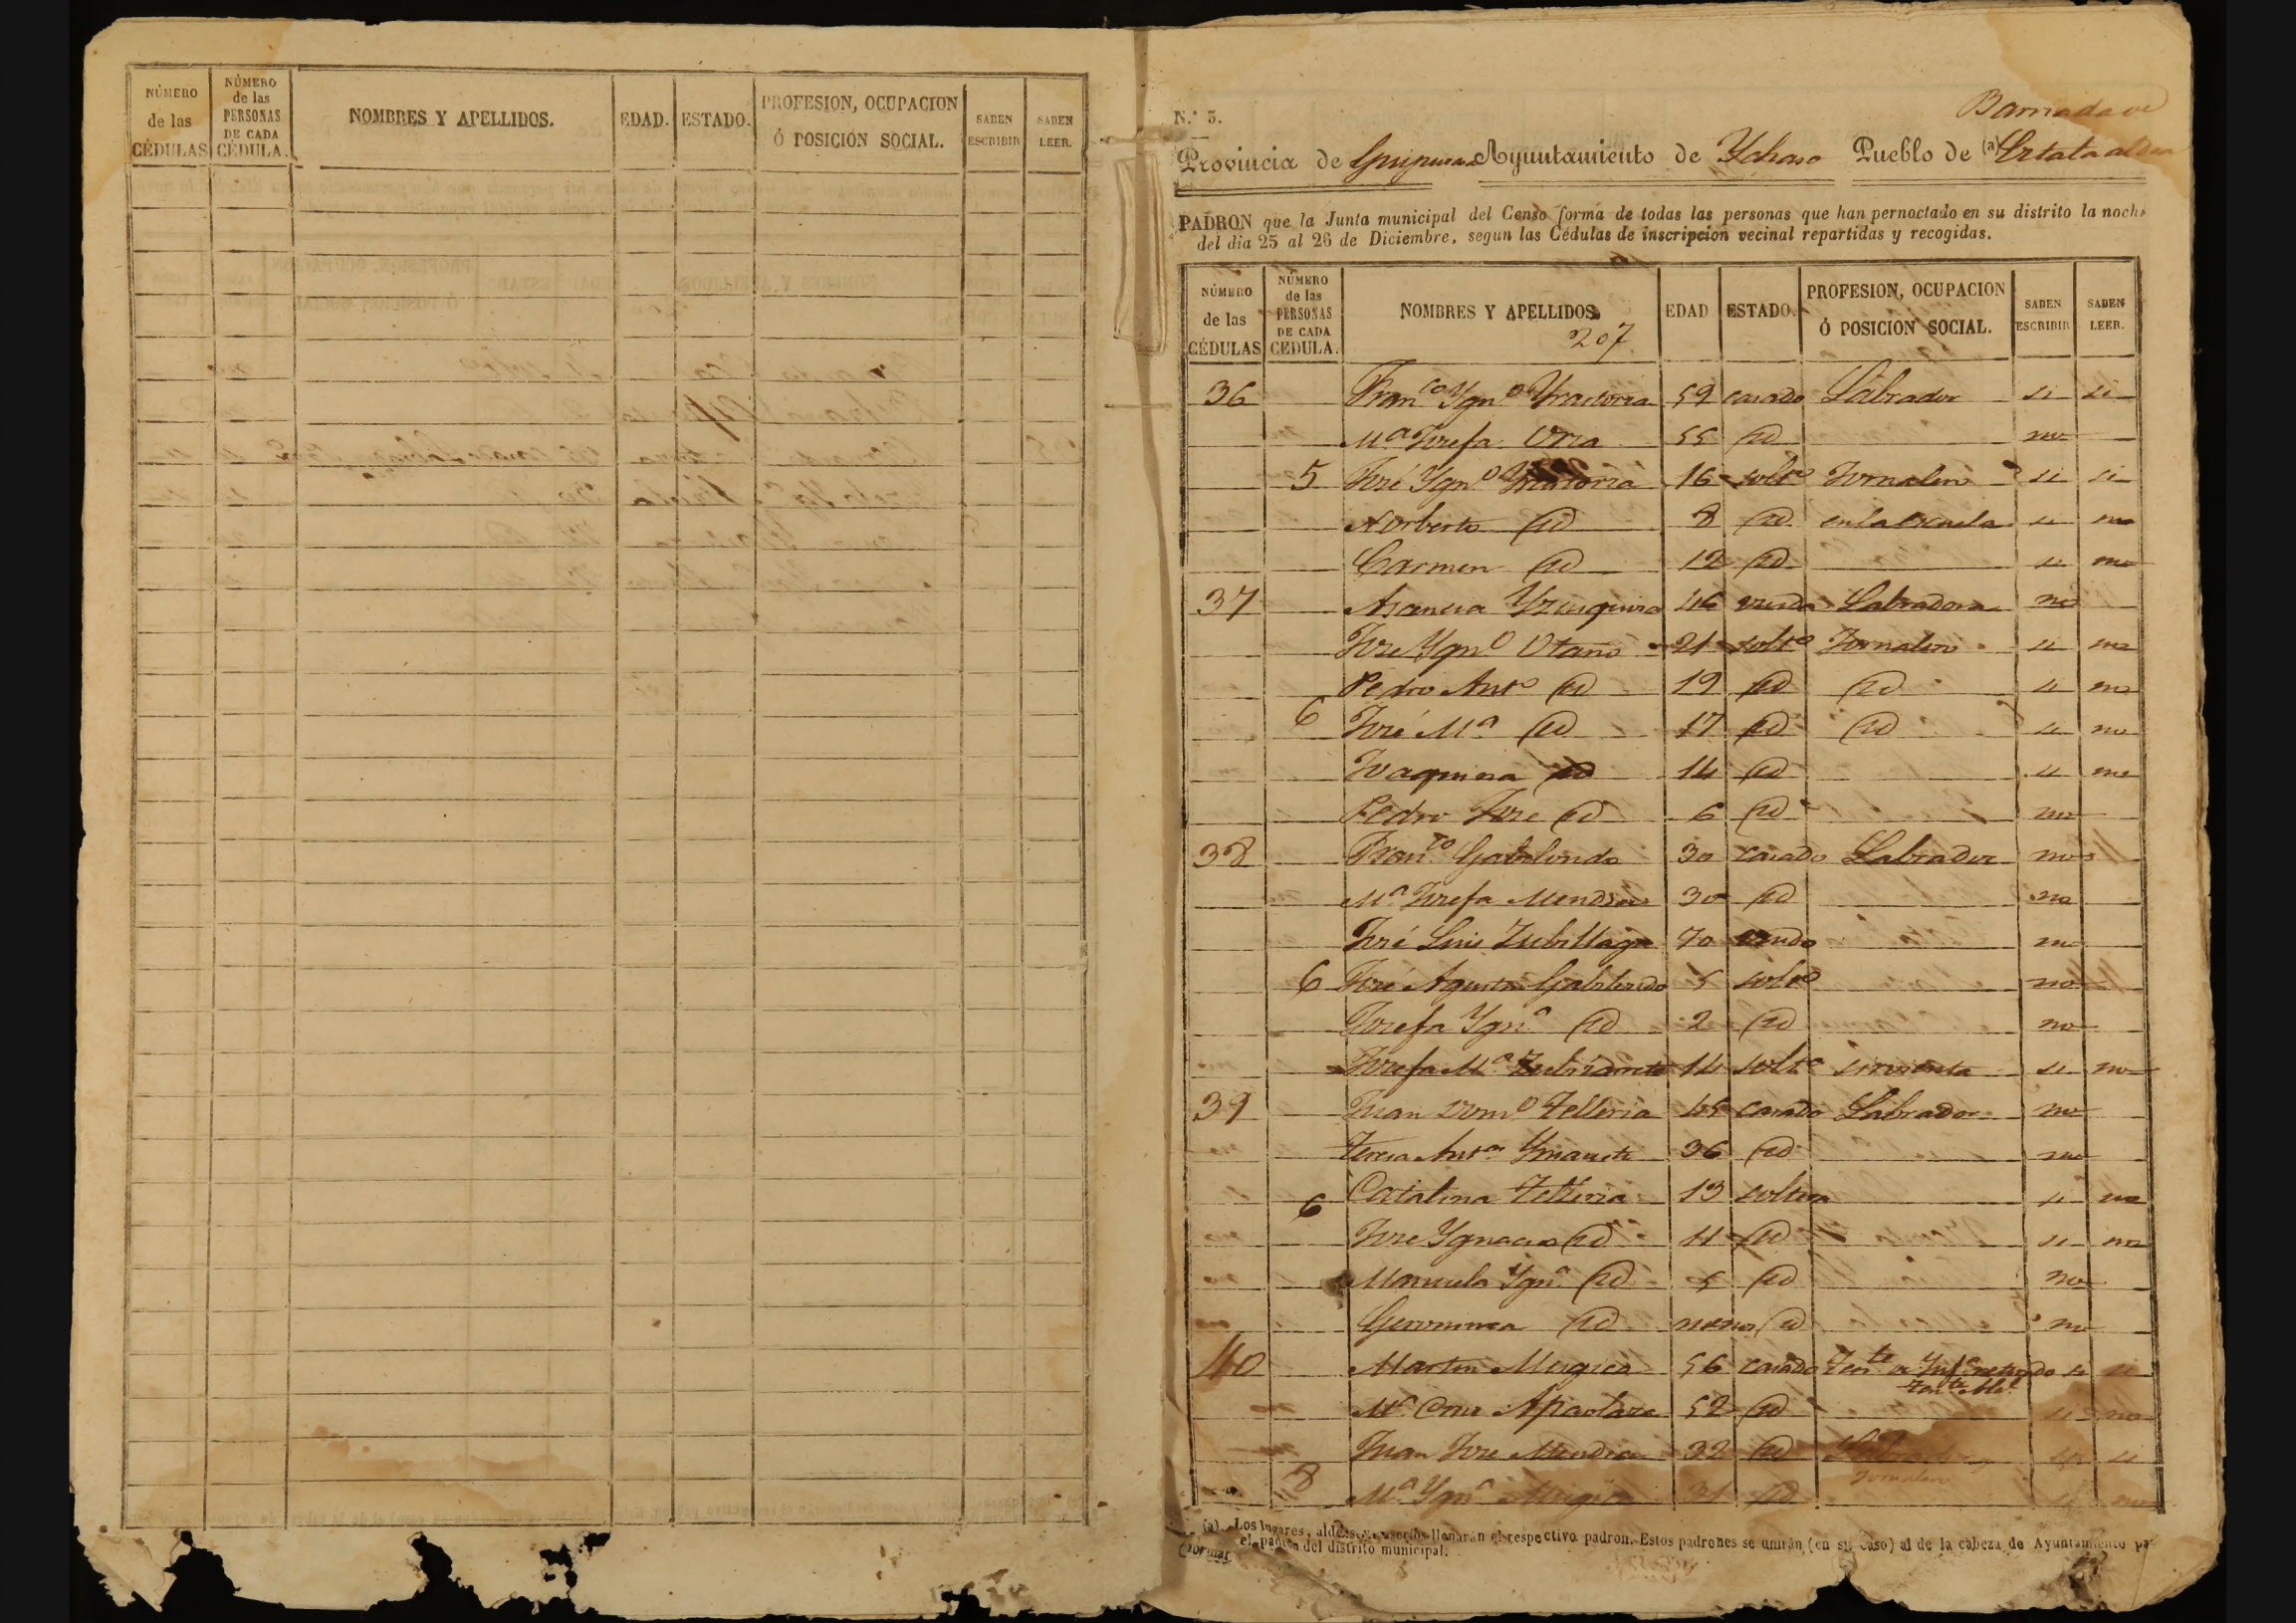 NÚMERO de las CÉDULAS NÚMERO de las PERSONAS DE CADA CÉDULA. NOMBRES Y APELLIDOS. EDAD. ESTADO. PROFESION, OCUPACION Ó POSICION SOCIAL. SABEN ESCRIBIR SABEN LEER.
N.º 3.
Barriada de
Provincia de Guipuzcoa Ayuntamiento de Ychaso Pueblo de (a)
PADRON que la Junta municipal del Censo forma de todas las personas que han pernoctado en su distrito la noche
del dia 25 al 26 de Diciembre, segun las Cédulas de inscripcion vecinal repartidas y recogidas.
NÚMERO de las CÉDULAS NÚMERO de las PERSONAS DE CADA CEDULA. NOMBRES Y APELLIDOS. EDAD ESTADO. PROFESION, OCUPACION Ó POSICION SOCIAL. SABEN ESCRIBIR SABEN LEER.
207
36 Fran.co Ygn.o 52 casado Labrador si si
M.a Josefa 55 id no
5 José Ygn.o 16 solt.o Jornalero si si
Norberto id 8 id en la escuela si no
Carmen id 12 id si no
37 46 viuda Labradora no
Jose Ygn.o Otaño 21 solt.o Jornalero si no
Pedro Ant.o id 19 id id si no
6 José M.a id 17 id id si no
Joaquina id 14 id si no
Pedro Jose id 6 id no
38 Fran.co Gabilondo 30 casado Labrador no
M.a Josefa Mendia 30 id no
José Luis Zubillaga 70 viudo no
6 José Agustin Gabilondo 5 solt.o no
Josefa Ygn.a id 2 id no
Josefa M.a 14 solt.a sirvienta si no
39 Juan Dom.o Telleria 45 casado Labrador no
Teresa Ant.a 36 id no
6 Catalina Telleria 13 soltera si no
Jose Ygnacio id 11 id si no
Manuela Ygn.a id 5 id no
Geronima id id no
40 Martin Mugica 56 casado Ten.te de Inf.a retirado si si
M.a Cruz Apaolaza 52 id si no
Juan Jose Mendia 32 id si
Jornalero
8 M.a Ygn.a Mugica 31 id si no
(a) Los lugares, aldeas y caserios llenarán el respectivo padron. Estos padrones se unirán (en su caso) al de la cabeza de Ayuntamiento
formar el padron del distrito municipal.